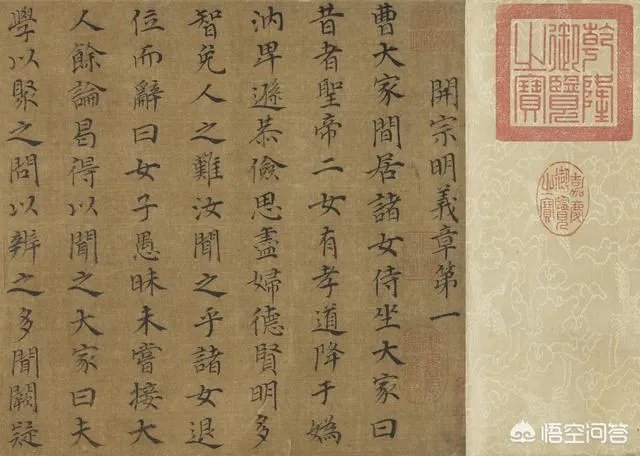 乾隆
御覽
之寶
嘉慶
御覽
之寶
開宗明義章第一
曹大家間居諸女侍坐大家曰
昔者聖帝二女有孝道降于媯
汭卑遜恭儉思盡婦德賢明多
智免人之難汝聞之乎諸女退
位而辭曰女子愚昧未嘗接大
人餘論曷得以聞之大家曰夫
學以聚之問以辨之多聞闕疑
悟空问答